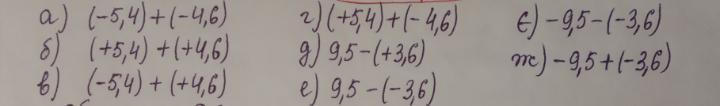 а) (-5,4)+(-4,6)
б) (+5,4)+(+4,6)
в) (-5,4)+(+4,6)
г) (+5,4)+(-4,6)
д) 9,5-(+3,6)
е) 9,5-(-3,6)
є) -9,5-(-3,6)
ж) -9,5+(-3,6)